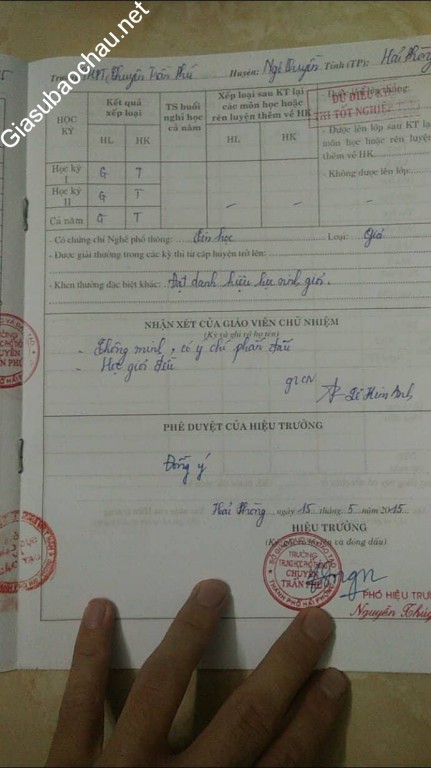 Giasubaochau.net
Trường THPT Chuyên Trần Phú Huyện: Ngô Quyền Tỉnh (TP): Hải Phòng
HỌC KỲ
Kết quả xếp loại
TS buổi nghỉ học cả năm
Xếp loại sau KT lại các môn học hoặc rèn luyện thêm về HK
HL HK HL HK
ĐỦ ĐIỀU KIỆN
THI TỐT NGHIỆP
- Được lên lớp sau KT lại
môn học hoặc rèn luyện
thêm về HK
- Không được lên lớp
Học kỳ I G T
Học kỳ II G T
Cả năm G T
- Có chứng chỉ Nghề phổ thông: Tin học Loại: Giỏi
- Được giải thưởng trong các kỳ thi từ cấp huyện trở lên:
- Khen thưởng đặc biệt khác: Đạt danh hiệu học sinh giỏi.
NHẬN XÉT CỦA GIÁO VIÊN CHỦ NHIỆM
(Ký và ghi rõ họ tên)
- Thông minh, có ý chí phấn đấu
- Học giỏi đều
GVCN
PHÊ DUYỆT CỦA HIỆU TRƯỞNG
Đồng ý
Hải Phòng ngày 15 tháng 5 năm 2015
HIỆU TRƯỞNG
(Ký, ghi rõ họ tên và đóng dấu)
TRƯỜNG
TRUNG HỌC PHỔ THÔNG
CHUYÊN
TRẦN PHÚ
THÀNH PHỐ HẢI PHÒNG
PHÓ HIỆU TRƯ
Nguyễn